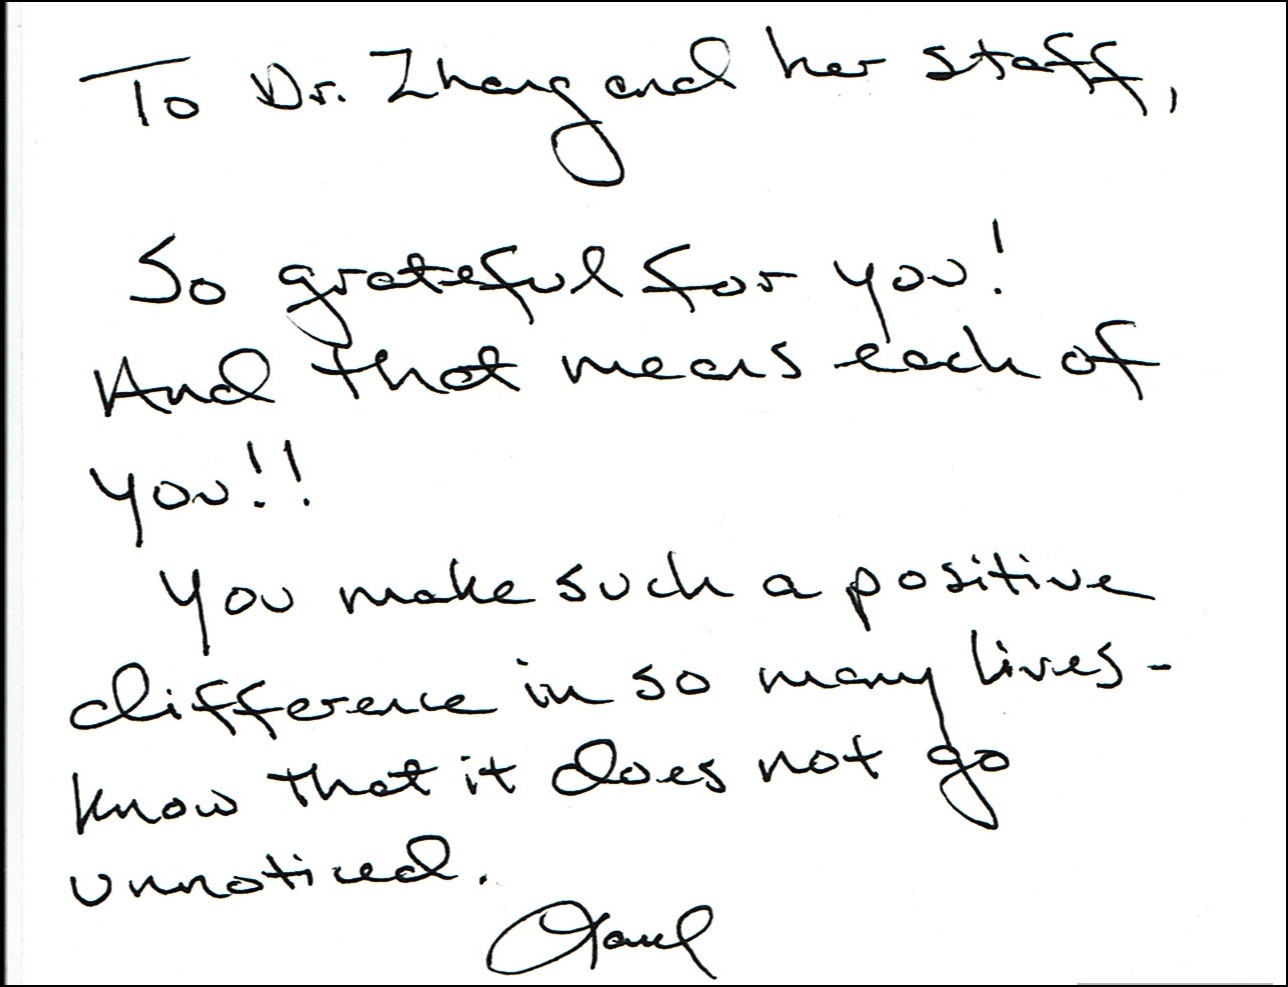 To Dr. Zhang and her staff,
So grateful for you!
And that means each of
you!!
You make such a positive
difference in so many lives-
know that it does not go
unnoticed.